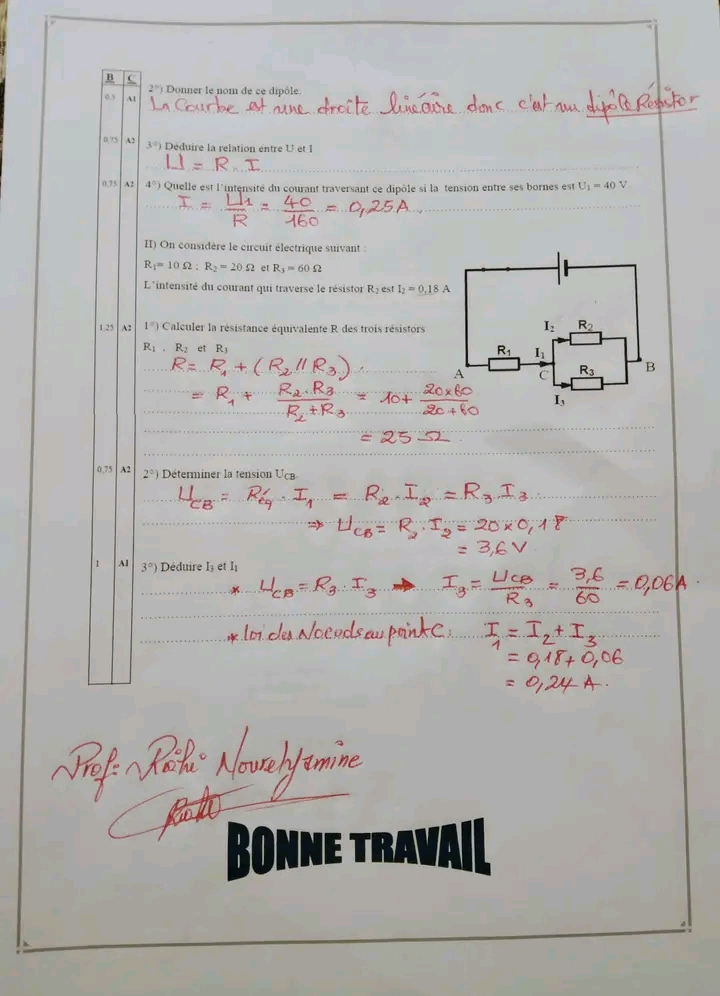 B C
0,5 A1
2°) Donner le nom de ce dipôle.
La Courbe est une droite linéaire donc c'est un dipôle Résistor
0,75 A2
3°) Déduire la relation entre U et I
U = R . I
0,75 A2
4°) Quelle est l'intensité du courant traversant ce dipôle si la tension entre ses bornes est U₁ = 40 V
I = U₁/R = 40/160 = 0,25A
II) On considère le circuit électrique suivant :
R₁= 10 Ω ; R₂ = 20 Ω et R₃ = 60 Ω
L'intensité du courant qui traverse le résistor R₂ est I₂ = 0,18 A
1,25 A2
1°) Calculer la résistance équivalente R des trois résistors
R₁ , R₂ et R₃
R = R₁ + (R₂ // R₃)
= R₁ + R₂.R₃/R₂+R₃ = 10+ 20x60/20+60
= 25 Ω
I₂ R₂
A R₁ I₁ C R₃ B
I₃
0,75 A2
2°) Déterminer la tension UCB.
UCB = Réq . I₁ = R₂ . I₂ = R₃ . I₃
⇒ UCB = R₂ . I₂ = 20 x 0,18
= 3,6 V
1 A1
3°) Déduire I₃ et I₁
* UCB = R₃ . I₃ ➔ I₃ = UCB/R₃ = 3,6/60 = 0,06A
* loi des Noeuds au point C: I₁ = I₂ + I₃
= 0,18 + 0,06
= 0,24 A.
Prof: Rihi Noureljamine
BONNE TRAVAIL